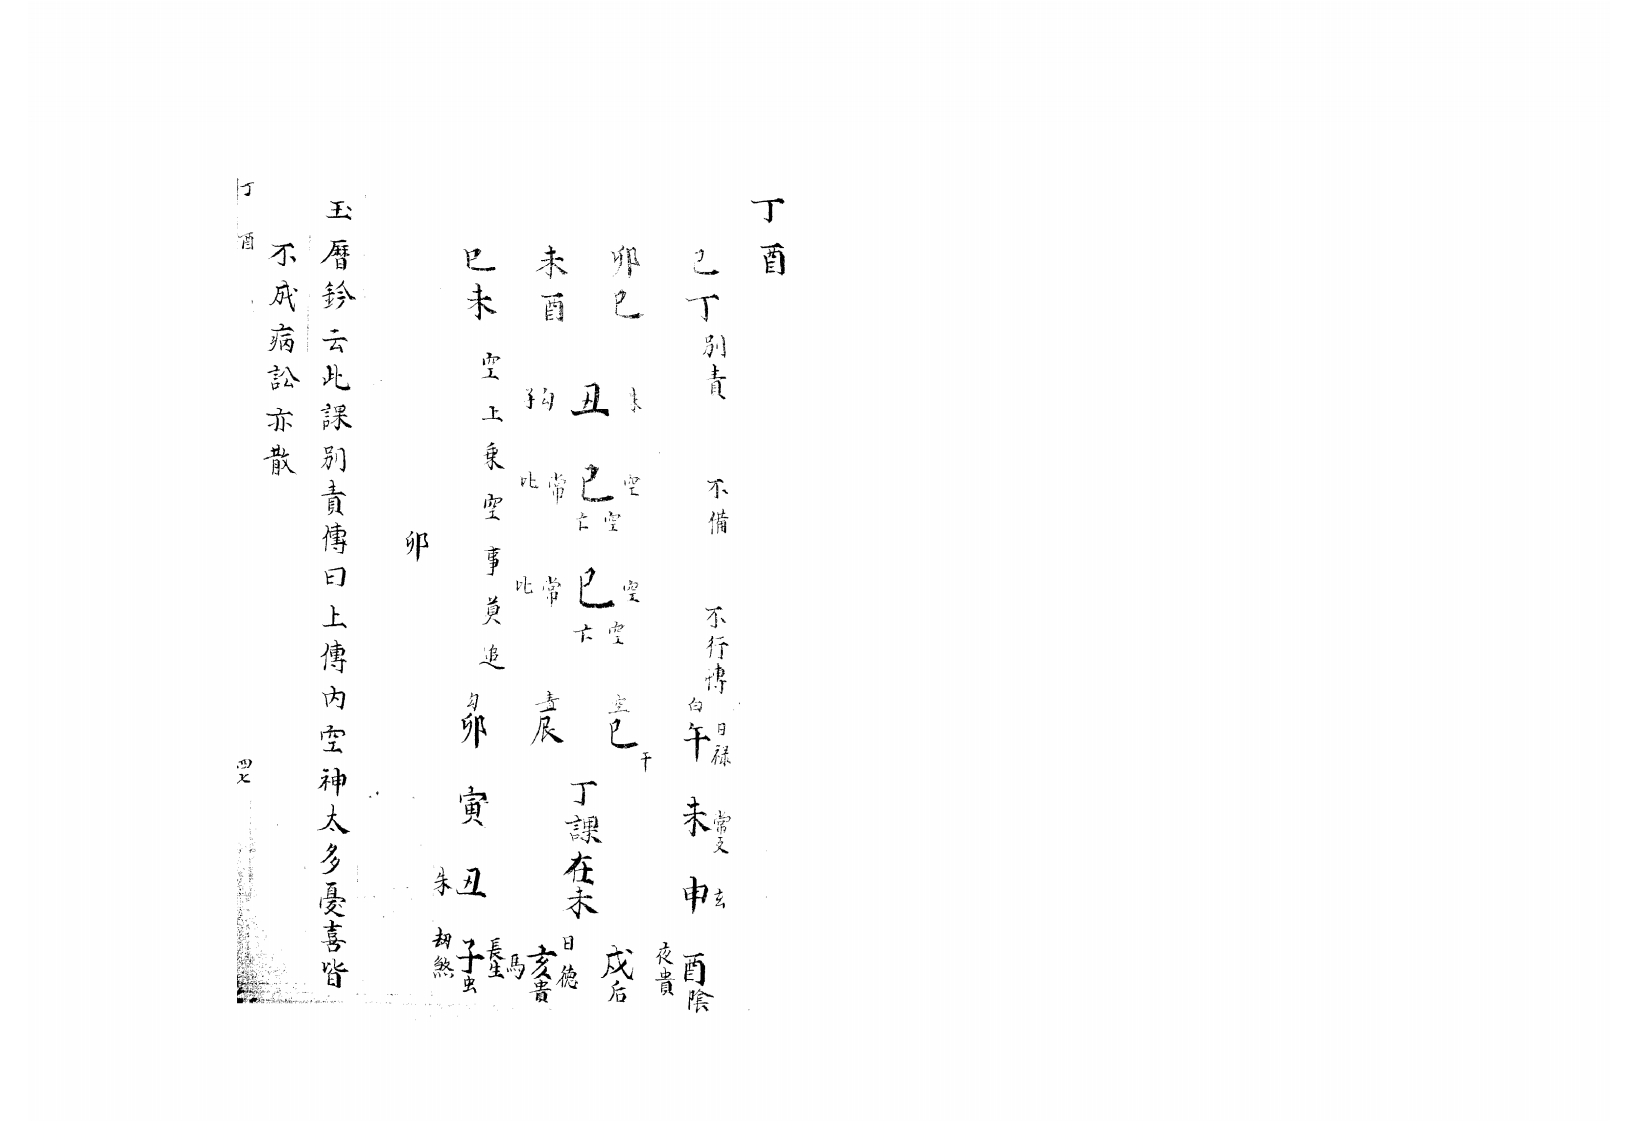 丁酉
巳丁 別責 不備 不行傳
卯巳
未酉
巳未
朱丑勾子
空巳常比
空亡
空巳常比
空亡
空上乗空事莫追
卯
白午日禄
未常
申玄
酉陰夜貴
空巳干
戌后
青辰
丁課在未
亥貴日德馬
勾卯
寅
丑朱
子虫長生劫煞
玉曆鈐云此課別責傳曰上傳内空神太多憂喜皆
不成病訟亦散
丁酉
四七